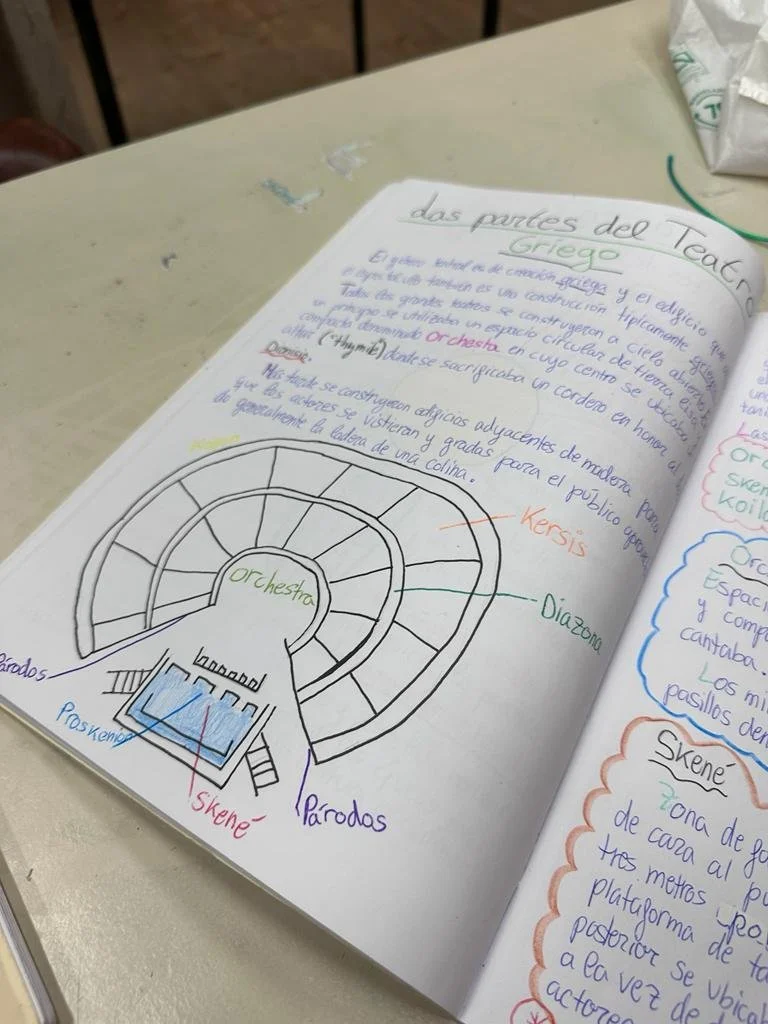 Las partes del Teatro
Griego
El género teatral es de creación griega y el edificio que
el espectáculo también es una construcción típicamente griega
Todos los grandes teatros se construyeron a cielo abierto
un principio se utilizaba un espacio circular de tierra
compacta denominado Orchesta en cuyo centro se ubicaba
altar ("thymile") donde se sacrificaba un cordero en honor al
Dionisio.
Más tarde se construyeron edificios adyacentes de madera para
que los actores se vistieran y gradas para el público
do generalmente la ladera de una colina.
Kersis
Orchestra
Diazona
Párodos
Proskenio
Skené
Párodos
Las
Orc
Sken
Koilo
Orc
Espaci
y comp
cantaba.
Los mi
pasillos den
Skené
Zona de fo
de cara al pú
tres metros
plataforma de ta
posterior se ubicab
a la vez de
actores